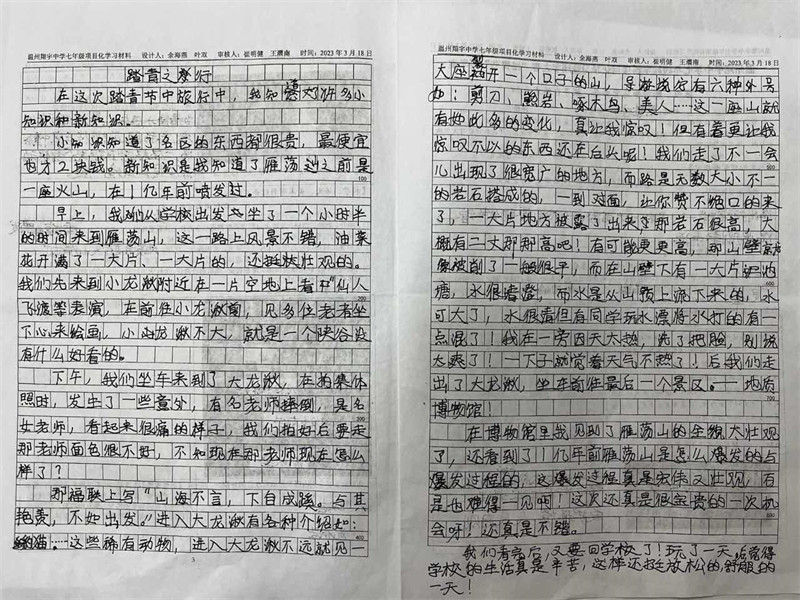 温州翔宇中学七年级项目化学习材料 设计人：余海燕 叶双 审核人：崔明健 王鹰南 时间：2023年3月18日
踏青之旅行
在这次踏青节中旅行中，我知道了许多小
知识和新知识。
小知识知道了景区的东西都很贵，最便宜
也为2块钱。新知识是我知道了雁荡山之前是
一座火山，在1亿年前喷发过。
早上，我们从学校出发坐了一个小时半
的时间来到雁荡山，这一路上风景不错，油菜
花开满了一大片、一大片的，还挺壮观的。
我们先来到小龙湫附近在一片空地上看"仙人
飞渡等表演，在前往小龙湫前，见多位老者坐
下心来绘画，小龙湫不大，就是一个峡谷没
有什么好看的。
下午，我们坐车来到了大龙湫，在拍集体
照时，发生了一些意外，有名老师摔倒，是名
女老师，看起来很痛的样子，我们拍好后要走
那老师面色很不好，不知现在那老师现在怎么
样了？
那福联上写"山海不言，下自成蹊。与其
艳羡，不如出发。"进入大龙湫有各种介绍如：
……这些稀有动物，进入大龙湫不远就见一
温州翔宇中学七年级项目化学习材料 设计人：余海燕 叶双 审核人：崔明健 王鹰南 时间：2023年3月18日
大座裂开一个口子的山，导游说它有六种外号
如：剪刀、鳄岩、啄木鸟、美人……这一座山就
有如此多的变化，真让我惊叹！但有着更让我
惊叹不以的东西还在后头呢！我们走了不一会
儿出现了很宽广的地方，而路是无数大小不一
的岩石搭成的，一到对面，让你赞不绝口的来
了，一大片地方被露了出来，那岩石很高，大
概有二丈那那高吧！有可能更更高，那山壁
像被削了一般很平，而在山壁下有一大片池
塘，水很清澄，而水是从山顶上流下来的，水
可大了，水很清但有同学玩水漂将水打的有一
点混了！我在一旁因天太热，洗了把脸，别说
太爽了！一下子就觉着天气不热了！后我们走
出了大龙湫，坐车前往最后一个景区。——地质
博物馆！
在博物馆里我见到了雁荡山的全貌太壮观
了，还看到了1亿年前雁荡山是怎么爆发的与
爆发过程的。这爆发过程真是宏伟又壮观，百
是也难得一见啊！这次还真是很宝贵的一次机
会呀！还真是不错。
我们看完后，又要回学校了！玩了一天。后觉得
学校的生活真是辛苦，这样还挺放松的，舒服的
一天！